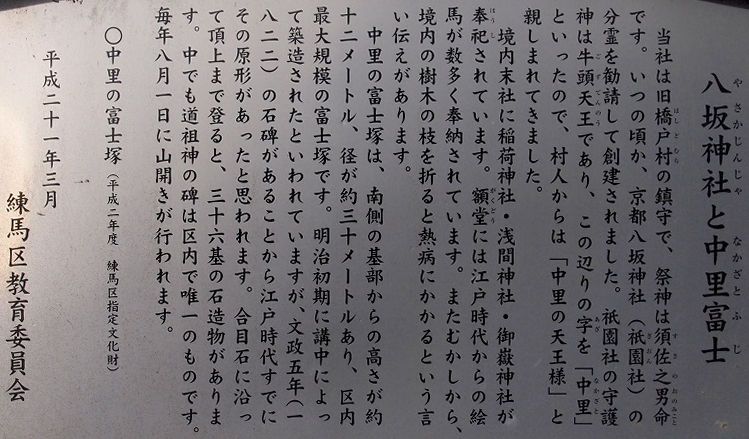 八坂神社と中里富士
やさかじんじゃ なかざとふじ
当社は旧橋戸村の鎮守で、祭神は須佐之男命
はしどむら すさのおのみこと
です。いつの頃か、京都八坂神社（祇園社）の
ぎおん
分霊を勧請して創建されました。祇園社の守護
神は牛頭天王であり、この辺りの字を「中里」
ごずてんのう あざ なかざと
といったので、村人からは「中里の天王様」と
親しまれてきました。
境内末社に稲荷神社・浅間神社・御嶽神社が
奉祀されています。額堂には江戸時代からの絵
ほうし がくどう
馬が数多く奉納されています。またむかしから、
境内の樹木の枝を折ると熱病にかかるという言
い伝えがあります。
中里の富士塚は、南側の基部からの高さが約
十二メートル、径が約三十メートルあり、区内
最大規模の富士塚です。明治初期に講中によっ
て築造されたといわれていますが、文政五年（一
八二二）の石碑があることから江戸時代すでに
その原形があったと思われます。合目石に沿っ
て頂上まで登ると、三十六基の石造物がありま
す。中でも道祖神の碑は区内で唯一のものです。
毎年八月一日に山開きが行われます。
〇中里の富士塚（平成二年度 練馬区指定文化財）
平成二十一年三月
練馬区教育委員会